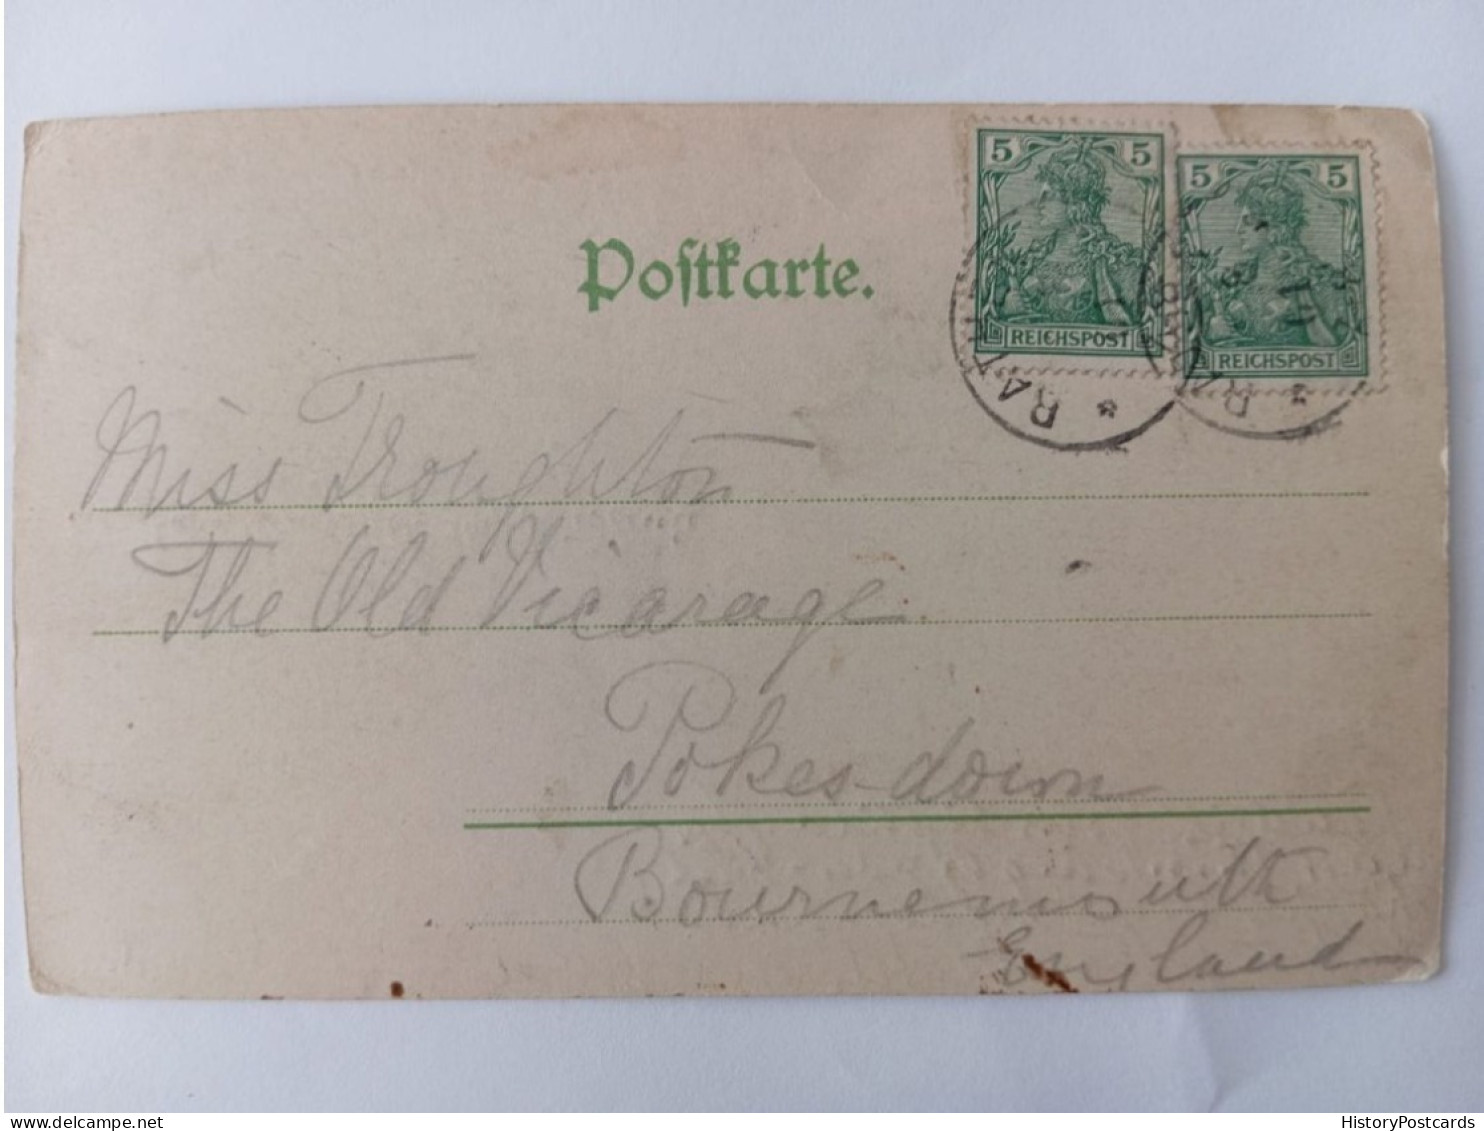 5 5
REICHSPOST
5 5
REICHSPOST
Postkarte.
Miss Troughton
The Old Vicarage.
Pokes-down
Bournemouth
England
delcampe.net
HistoryPostcards